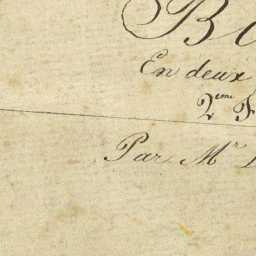 En deux
2eme
Par Mr